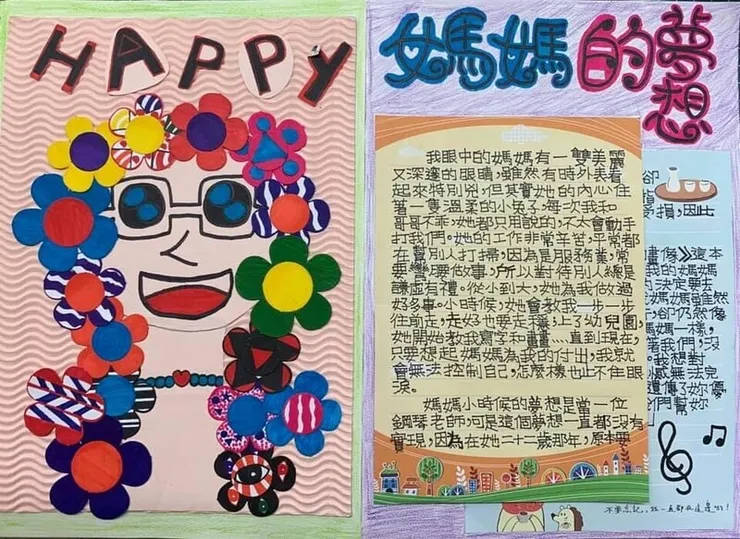 HAPPY
媽媽的夢想
我眼中的媽媽有一雙美麗
又深邃的眼睛，雖然有時外表看
起來特別兇，但其實她的內心住
著一隻溫柔的小兔子。每次我和
哥哥不乖，她都只用說的，不太會動手
打我們。她的工作非常辛苦，平常都
在賣別人打掃，因為是服務業，常
要彎腰做事，所以對待別人總是
謙虛有禮。從小到大，她為我做過
好多事。小時候，她會教我一步一步
往前走，走好也要走穩，上了幼兒園，
她開始教我寫字和畫畫……直到現在，
只要想起媽媽為我的付出，我就
會無法控制自己，怎麼樣也止不住眼
淚。
媽媽小時候的夢想是當一位
鋼琴老師，可是這個夢想一直都沒有
實現，因為在她二十二歲那年，原本要
卻
損，因此
畫像》這本
我的媽媽
決定要去
媽媽雖然
，卻仍然像
媽媽一樣，
著我們，沒
。我想對
感無法完
遺傳了妳優
們幫妳
不要忘記，我一直都在這邊喲！